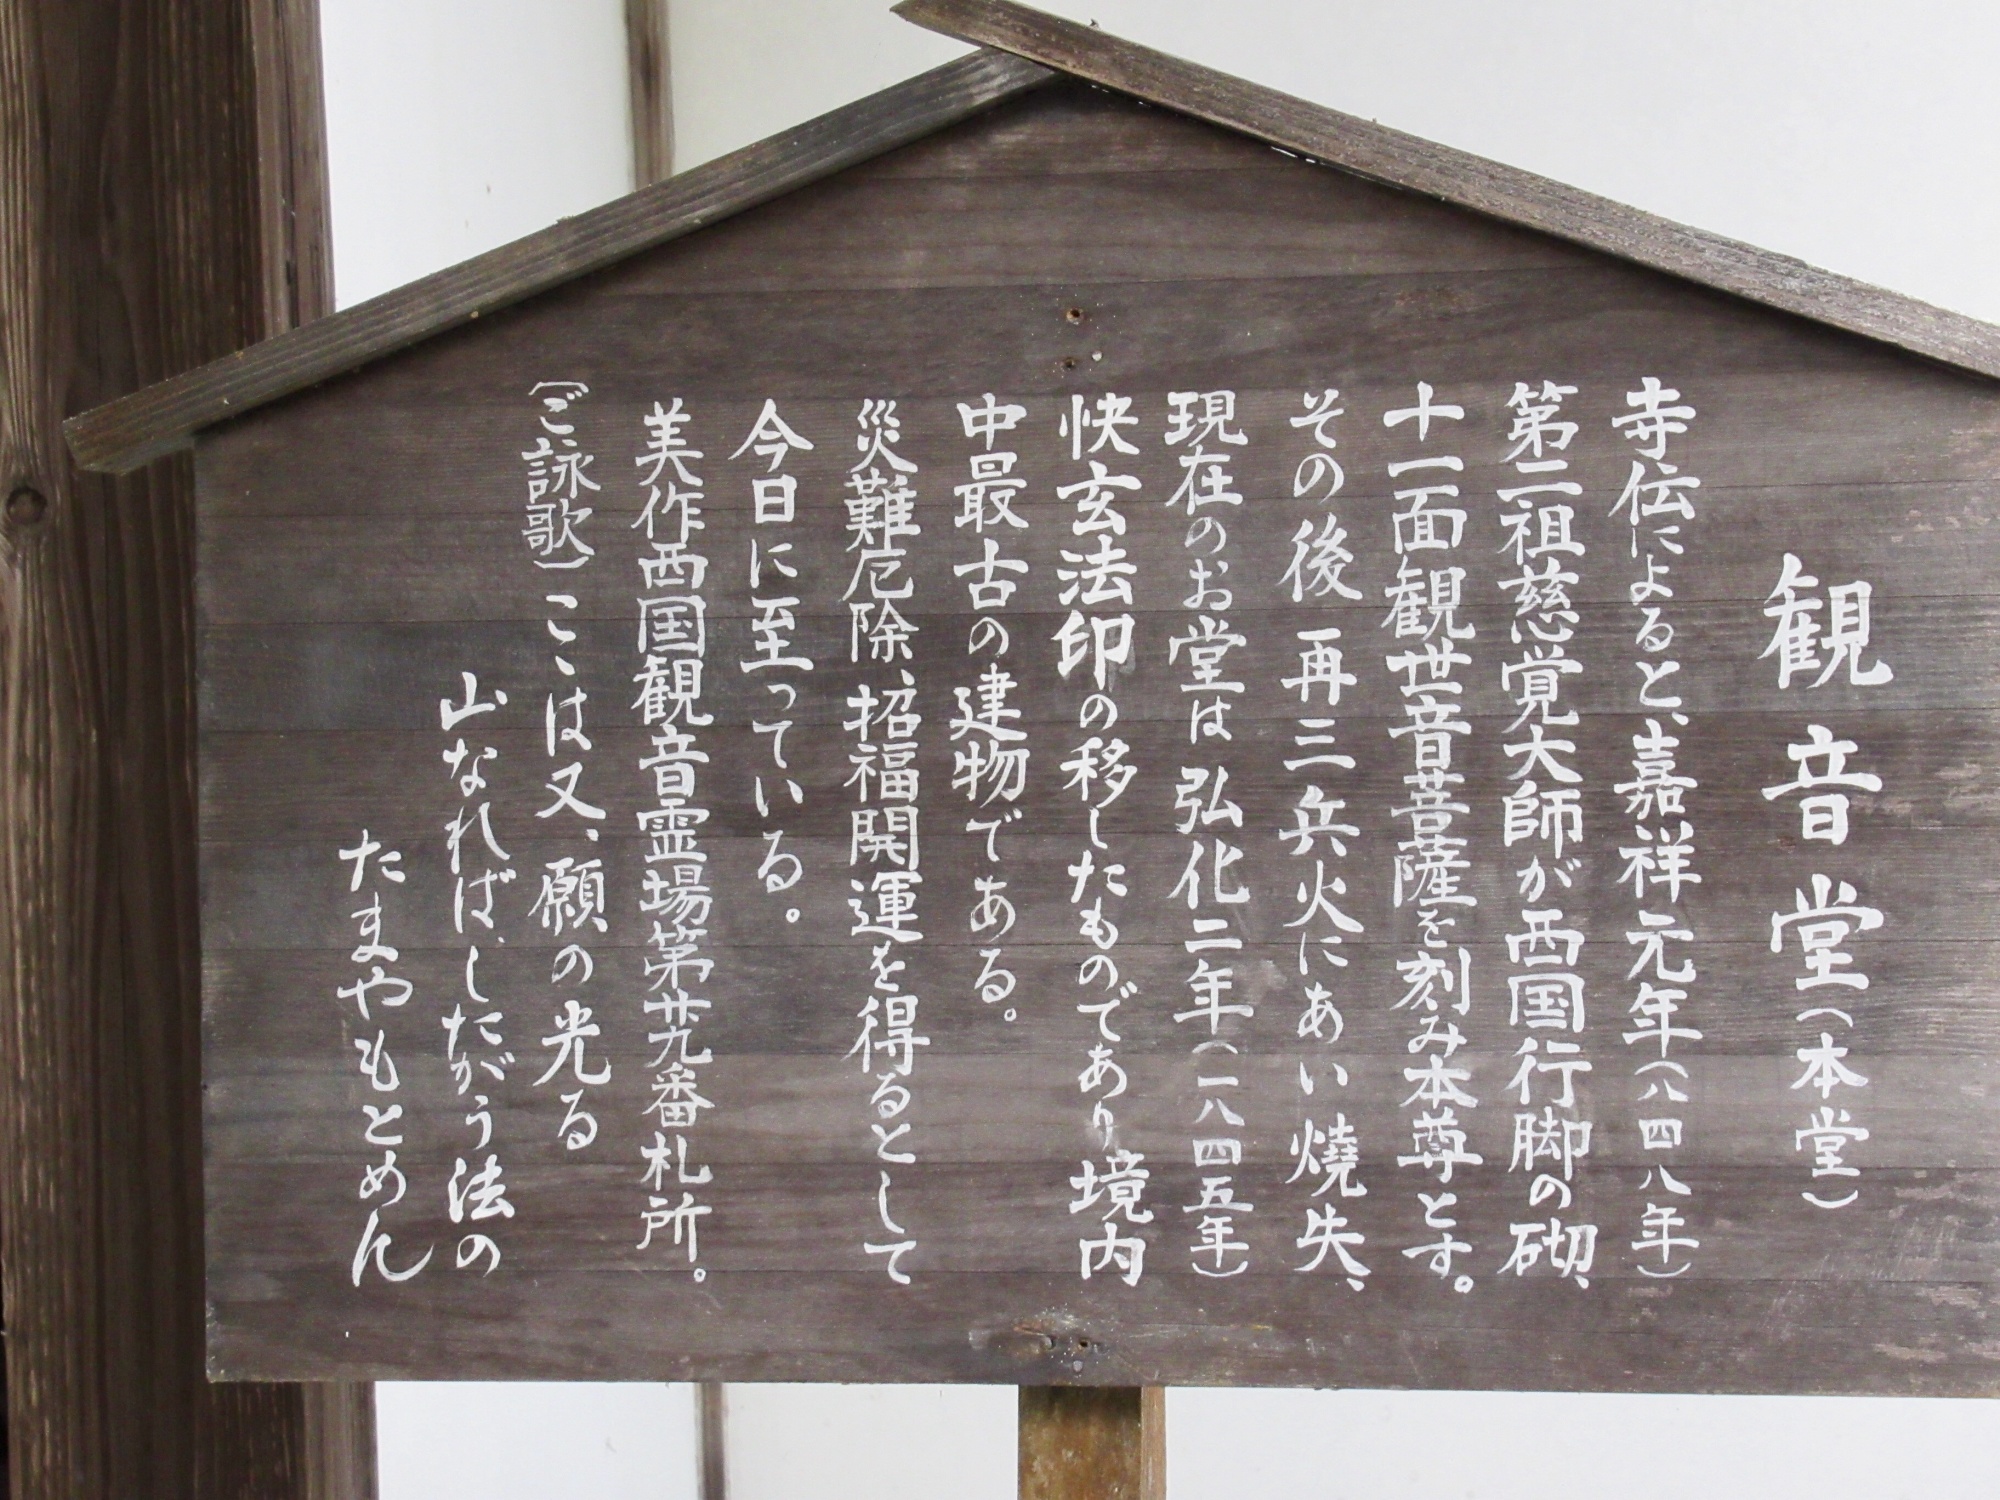 観音堂(本堂)
寺伝によると、嘉祥元年(八四八年)
第二祖慈覚大師が西国行脚の砌、
十一面観世音菩薩を刻み本尊とす。
その後再三兵火にあい焼失、
現在のお堂は弘化二年(一八四五年)
快玄法印の移したものであり境内
中最古の建物である。
災難厄除、招福開運を得るとして
今日に至っている。
美作西国観音霊場第廿九番札所。
〔ご詠歌〕こゝは又、願の光る
山なれば、したがう法の
たまやもとめん